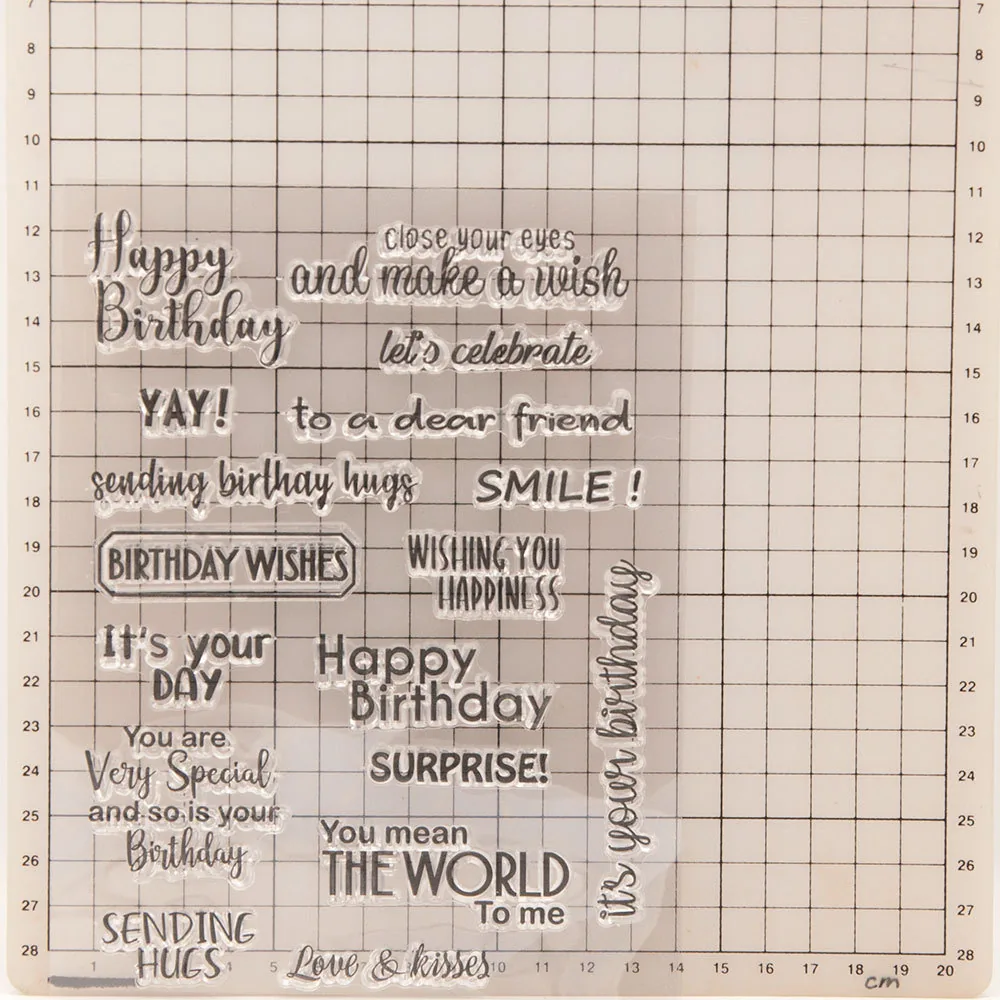 7
8
9
10
11
12
13
14
15
16
17
18
19
20
21
22
23
24
25
26
27
28
Happy
Birthday
close your eyes
and make a wish
let's celebrate
YAY!
to a dear friend
sending birthay hugs
SMILE !
BIRTHDAY WISHES
WISHING YOU
HAPPINESS
It's your
DAY
Happy
Birthday
it's your birthday
You are
Very Special
and so is your
Birthday
SURPRISE!
You mean
THE WORLD
To me
SENDING
HUGS
Love & kisses
1 4 5 10 11 12 13 14 15 16 17 18 19 20
cm
7
8
9
10
11
12
13
14
15
16
17
18
19
20
21
22
23
24
25
26
27
28